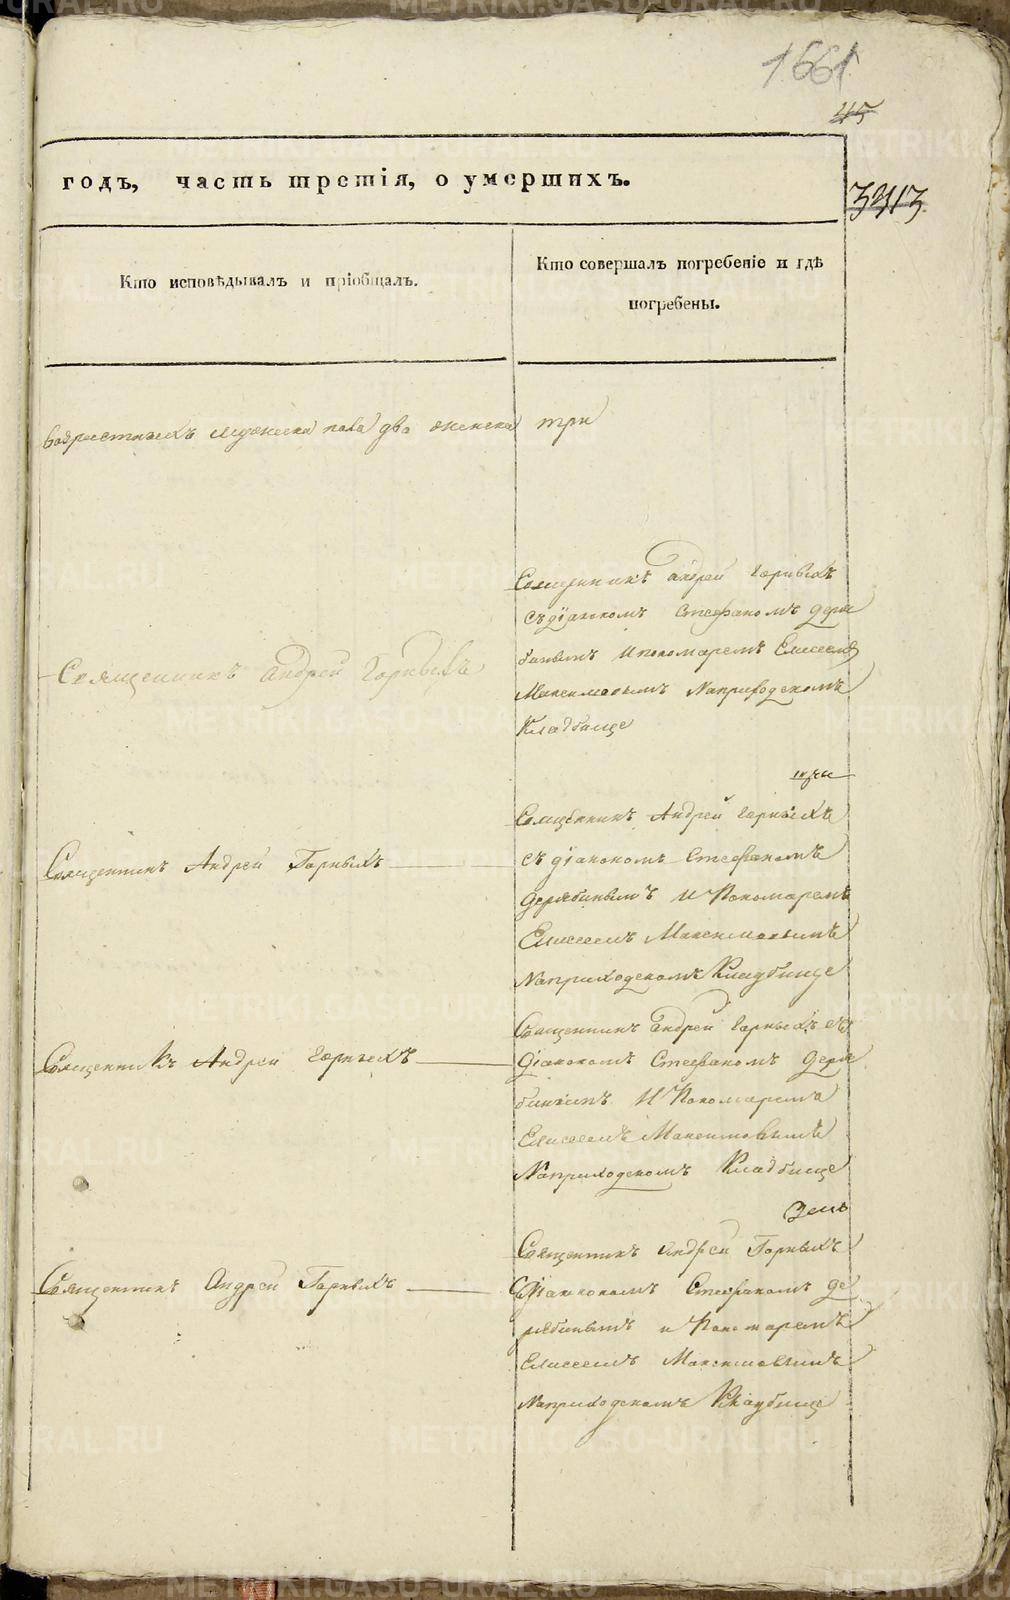 1661
45
3313
годъ, часть третія, о умершихъ.
Кто исповѣдывалъ и пріобщалъ.
Кто совершалъ погребеніе и гдѣ
погребены.
возрастныхъ мужеска пола два женска три
Священникъ Андрей Горныхъ
Священникъ Андрей Горныхъ
съ діакономъ Стефаномъ Деря
бинымъ и пономаремъ Елисеемъ
Максимовымъ Наприходскомъ
Кладбище
Священникъ Андрей Горныхъ
Священникъ Андрей Горныхъ
съ діакономъ Стефаномъ
Дерябинымъ и Пономаремъ
Елисеемъ Максимовымъ
Наприходскомъ Кладбище
Священникъ Андрей Горныхъ
Священникъ Андрей Горныхъ съ
Діакономъ Стефаномъ Деря
бинымъ И Пономаремъ
Елисеемъ Максимовымъ
Наприходскомъ Кладбище
Священникъ Андрей Горныхъ
Священникъ Андрей Горныхъ
Съ Діакономъ Стефаномъ Де
рябинымъ и Пономаремъ
Елисеемъ Максимовымъ
Наприходскомъ Кладбище
METRIKI.GASO-URAL.RU